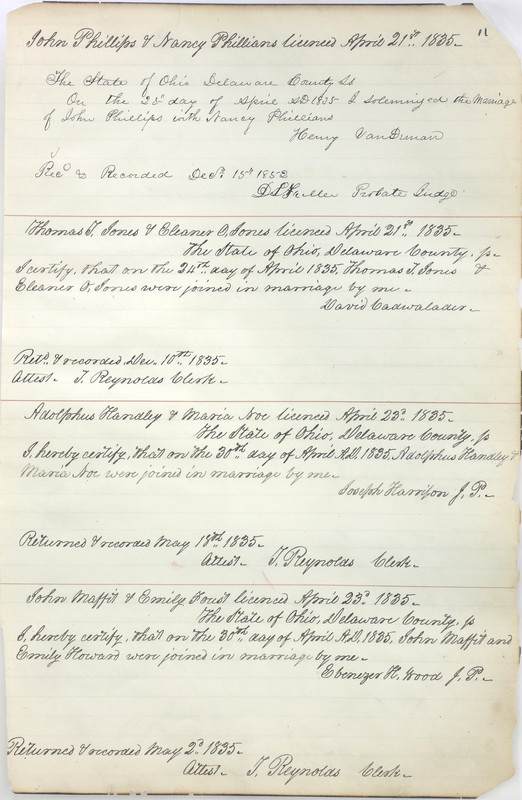 11
John Phillips & Nancy Phillians licenced April 21st. 1835.
The State of Ohio Delaware County Ss
On the 23d day of April AD 1835 I solemnized the Marriage
of John Phillips with Nancy Phillians
Henry VanDeman
Recd & Recorded Decr. 15th 1852
Probate Judge
Thomas T. Jones & Eleaner O. Jones licenced April 21st. 1835.
The State of Ohio, Delaware County. ss
I certify, that on the 24th. day of April 1835, Thomas T. Jones &
Eleaner O. Jones were joined in marriage by me.
David Cadwalader.
Retd. & recorded Dec. 10th 1835.
Attest. T. Reynolds Clerk.
Adolphus Handley & Maria Noe licenced April 23d. 1835.
The State of Ohio, Delaware County. ss
I, hereby certify, that on the 30th day of April A.D. 1835, Adolphus Handley &
Maria Noe were joined in marriage by me.
Joseph Harrison J. P.
Returned & recorded May 18th. 1835.
Attest. T. Reynolds Clerk.
John Maffit & Emily Foust licenced April 23d. 1835.
The State of Ohio, Delaware County. ss
I, hereby certify, that on the 30th day of April A.D. 1835, John Maffit and
Emily Howard were joined in marriage by me.
Ebenezer K. Wood J. P.
Returned & recorded May 2d. 1835.
Attest. T. Reynolds Clerk.